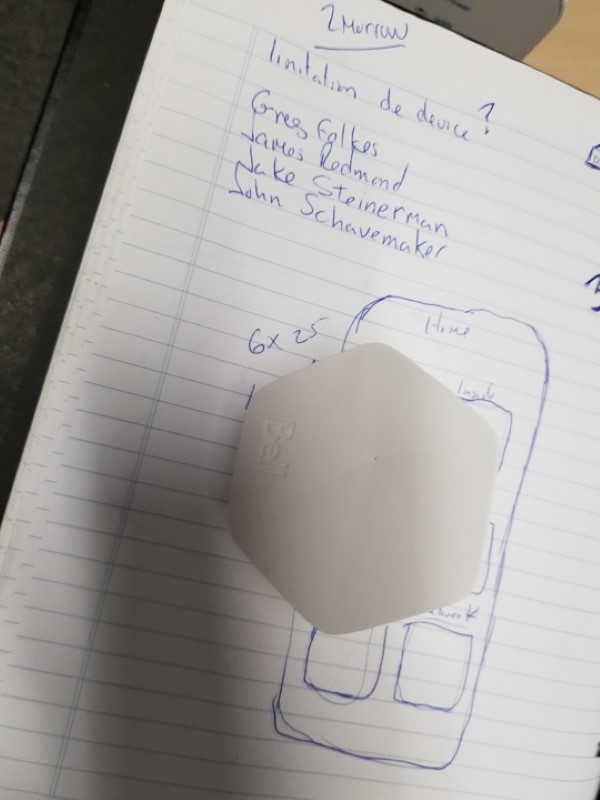 2Morrow
limitation de device ?
Greg Folkes
James Redmond
Jake Steinerman
John Schavemaker
Home
6x 25
Bell